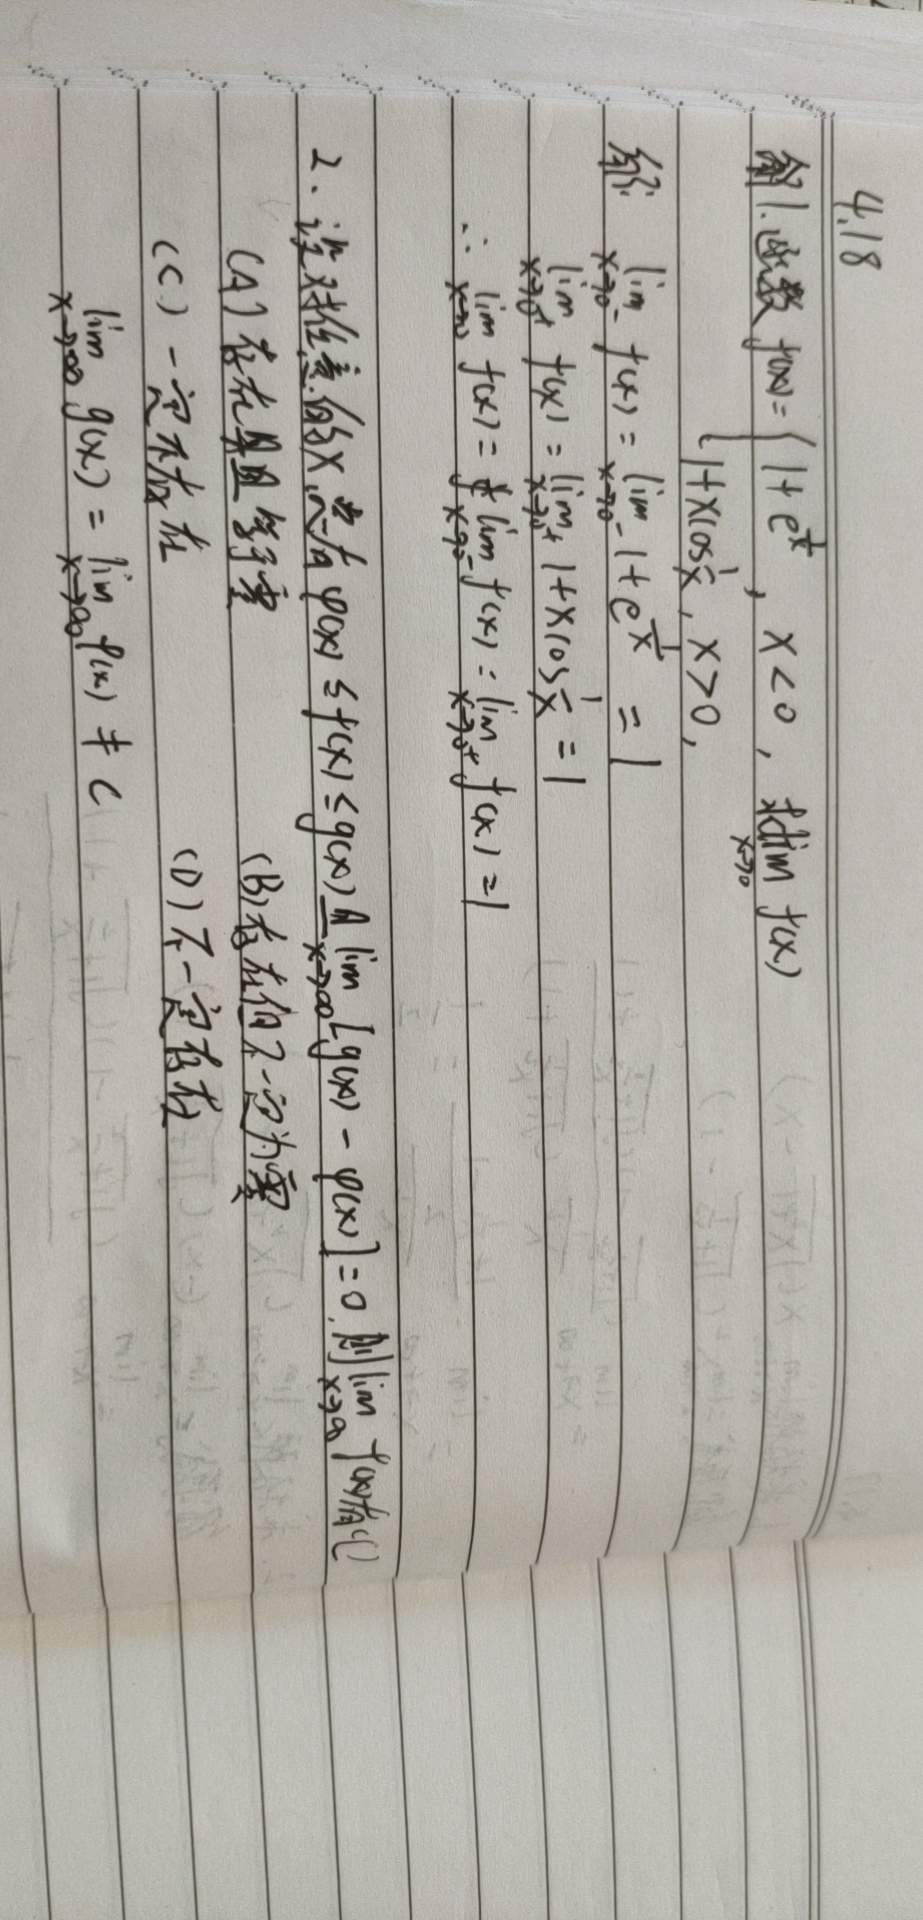 4.18
解1.函数 f(x)={ 1+e^{1/x} , x<0 , 求lim_{x→0} f(x)
1+xcos1/x , x>0 ,
解: lim_{x→0-} f(x) = lim_{x→0-} 1+e^{1/x} = 1
lim_{x→0+} f(x) = lim_{x→0+} 1+xcos1/x = 1
∴ lim_{x→0} f(x) = lim_{x→0-} f(x) = lim_{x→0+} f(x) = 1
2. 设对任意的x,总有 φ(x) ≤ f(x) ≤ g(x) 且 lim_{x→∞} [g(x) - φ(x)] = 0, 则 lim_{x→∞} f(x)
(A) 存在且等零 (B) 存在但不一定为零
(C) 一定不存在 (D) 不一定存在
lim_{x→∞} g(x) = lim_{x→∞} φ(x) ≠ C